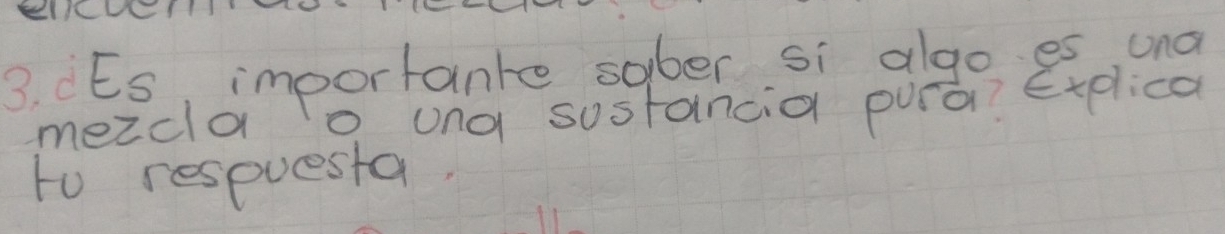 3. ¿Es importante saber si algo es una
mezcla o una sustancia pura? Explica
tu respuesta.